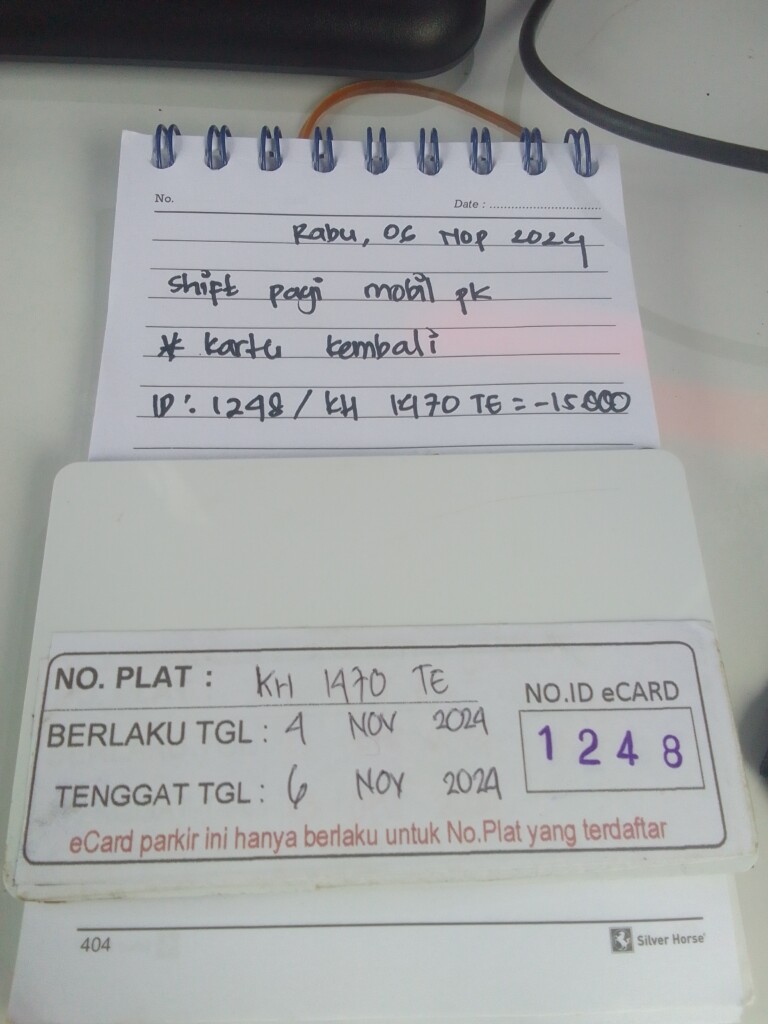 No.
Date :
Rabu, 06 Nop 2024
Shift pagi mobil pk
* kartu kembali
ID : 1248 / KH 1470 TE = -15.000
NO. PLAT : KH 1470 TE
BERLAKU TGL : 4 NOV 2024
TENGGAT TGL : 6 NOV 2024
NO.ID eCARD
1248
eCard parkir ini hanya berlaku untuk No.Plat yang terdaftar
404
Silver Horse